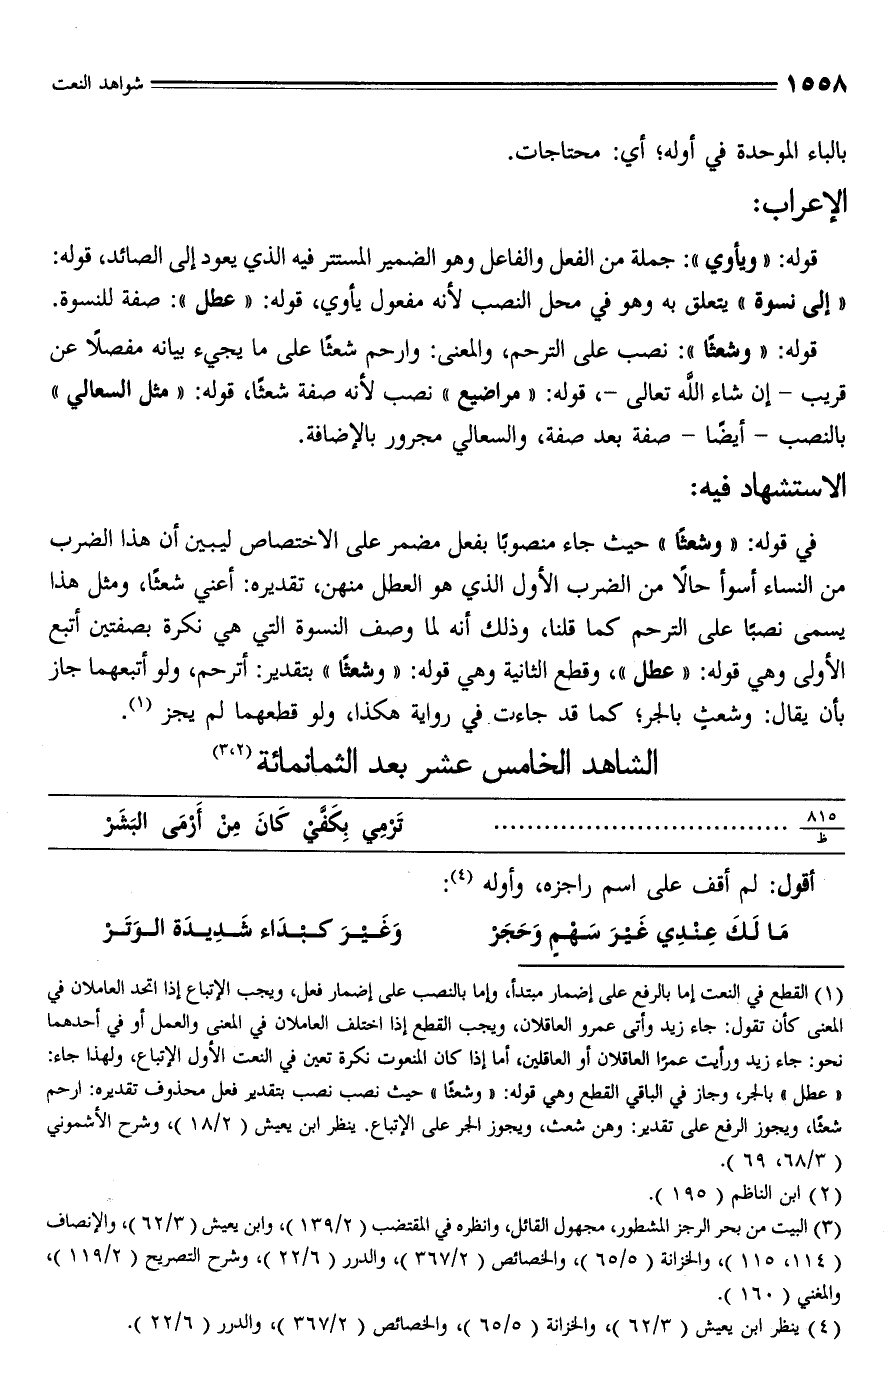 ١٥٥٨ شواهد النعت
بالباء الموحدة في أوله؛ أي: محتاجات.
الإعراب:
قوله: « ويأوي »: جملة من الفعل والفاعل وهو الضمير المستتر فيه الذي يعود إلى الصائد، قوله:
« إلى نسوة » يتعلق به وهو في محل النصب لأنه مفعول يأوي، قوله: « عطل »: صفة للنسوة.
قوله: « وشعثًا »: نصب على الترحم، والمعنى: وارحم شعثًا على ما يجيء بيانه مفصلًا عن
قريب - إن شاء اللَّه تعالى -، قوله: « مراضيع » نصب لأنه صفة شعثًا، قوله: « مثل السعالي »
بالنصب - أيضًا - صفة بعد صفة، والسعالي مجرور بالإضافة.
الاستشهاد فيه:
في قوله: « وشعثًا » حيث جاء منصوبًا بفعل مضمر على الاختصاص ليبين أن هذا الضرب
من النساء أسوأ حالًا من الضرب الأول الذي هو العطل منهن، تقديره: أعني شعثًا، ومثل هذا
يسمى نصبًا على الترحم كما قلنا، وذلك أنه لما وصف النسوة التي هي نكرة بصفتين أتبع
الأولى وهي قوله: « عطل »، وقطع الثانية وهي قوله: « وشعثًا » بتقدير: أترحم، ولو أتبعهما جاز
بأن يقال: وشعثٍ بالجر؛ كما قد جاءت في رواية هكذا، ولو قطعهما لم يجز (١).
الشاهد الخامس عشر بعد الثمانمائة (٢،٣)
٨١٥/ظ .................................. تَرْمِي بِكَفَّيْ كَانَ مِنْ أَرْمَى البَشَرْ
أقول: لم أقف على اسم راجزه، وأوله (٤):
مَا لَكَ عِنْدِي غَيْرَ سَهْمٍ وَحَجَرْ وَغَيْرَ كبْدَاء شَدِيدَة الوَتَرْ
(١) القطع في النعت إما بالرفع على إضمار مبتدأ، وإما بالنصب على إضمار فعل، ويجب الإتباع إذا اتحد العاملان في
المعنى كأن تقول: جاء زيد وأتى عمرو العاقلان، ويجب القطع إذا اختلف العاملان في المعنى والعمل أو في أحدهما
نحو: جاء زيد ورأيت عمرًا العاقلان أو العاقلين، أما إذا كان المنعوت نكرة تعين في النعت الأول الإتباع، ولهذا جاء:
« عطل » بالجر، وجاز في الباقي القطع وهي قوله: « وشعثًا » حيث نصب نصب بتقدير فعل محذوف تقديره: ارحم
شعثًا، ويجوز الرفع على تقدير: وهن شعث، ويجوز الجر على الإتباع. ينظر ابن يعيش ( ١٨/٢ )، وشرح الأشموني
( ٦٨/٣، ٦٩ ).
(٢) ابن الناظم ( ١٩٥ ).
(٣) البيت من بحر الرجز المشطور، مجهول القائل، وانظره في المقتضب ( ١٣٩/٢ )، وابن يعيش ( ٦٢/٣ )، والإنصاف
( ١١٤، ١١٥ )، والخزانة ( ٦٥/٥ )، والخصائص ( ٣٦٧/٢ )، والدرر ( ٢٢/٦ )، وشرح التصريح ( ١١٩/٢ )،
والمغني ( ١٦٠ ).
(٤) ينظر ابن يعيش ( ٦٢/٣ )، والخزانة ( ٦٥/٥ )، والخصائص ( ٣٦٧/٢ )، والدرر ( ٢٢/٦ ).